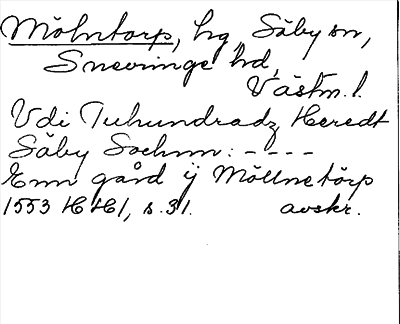 Möhntorp, hg, Säby sn,
Snevringe hd,
Västm. l.
Vdi Tuhundradz Heredt
Säby Sochnn: - - - -
Enn gård ÿ Möllnetörp
1553 HH1, s. 31. avskr.